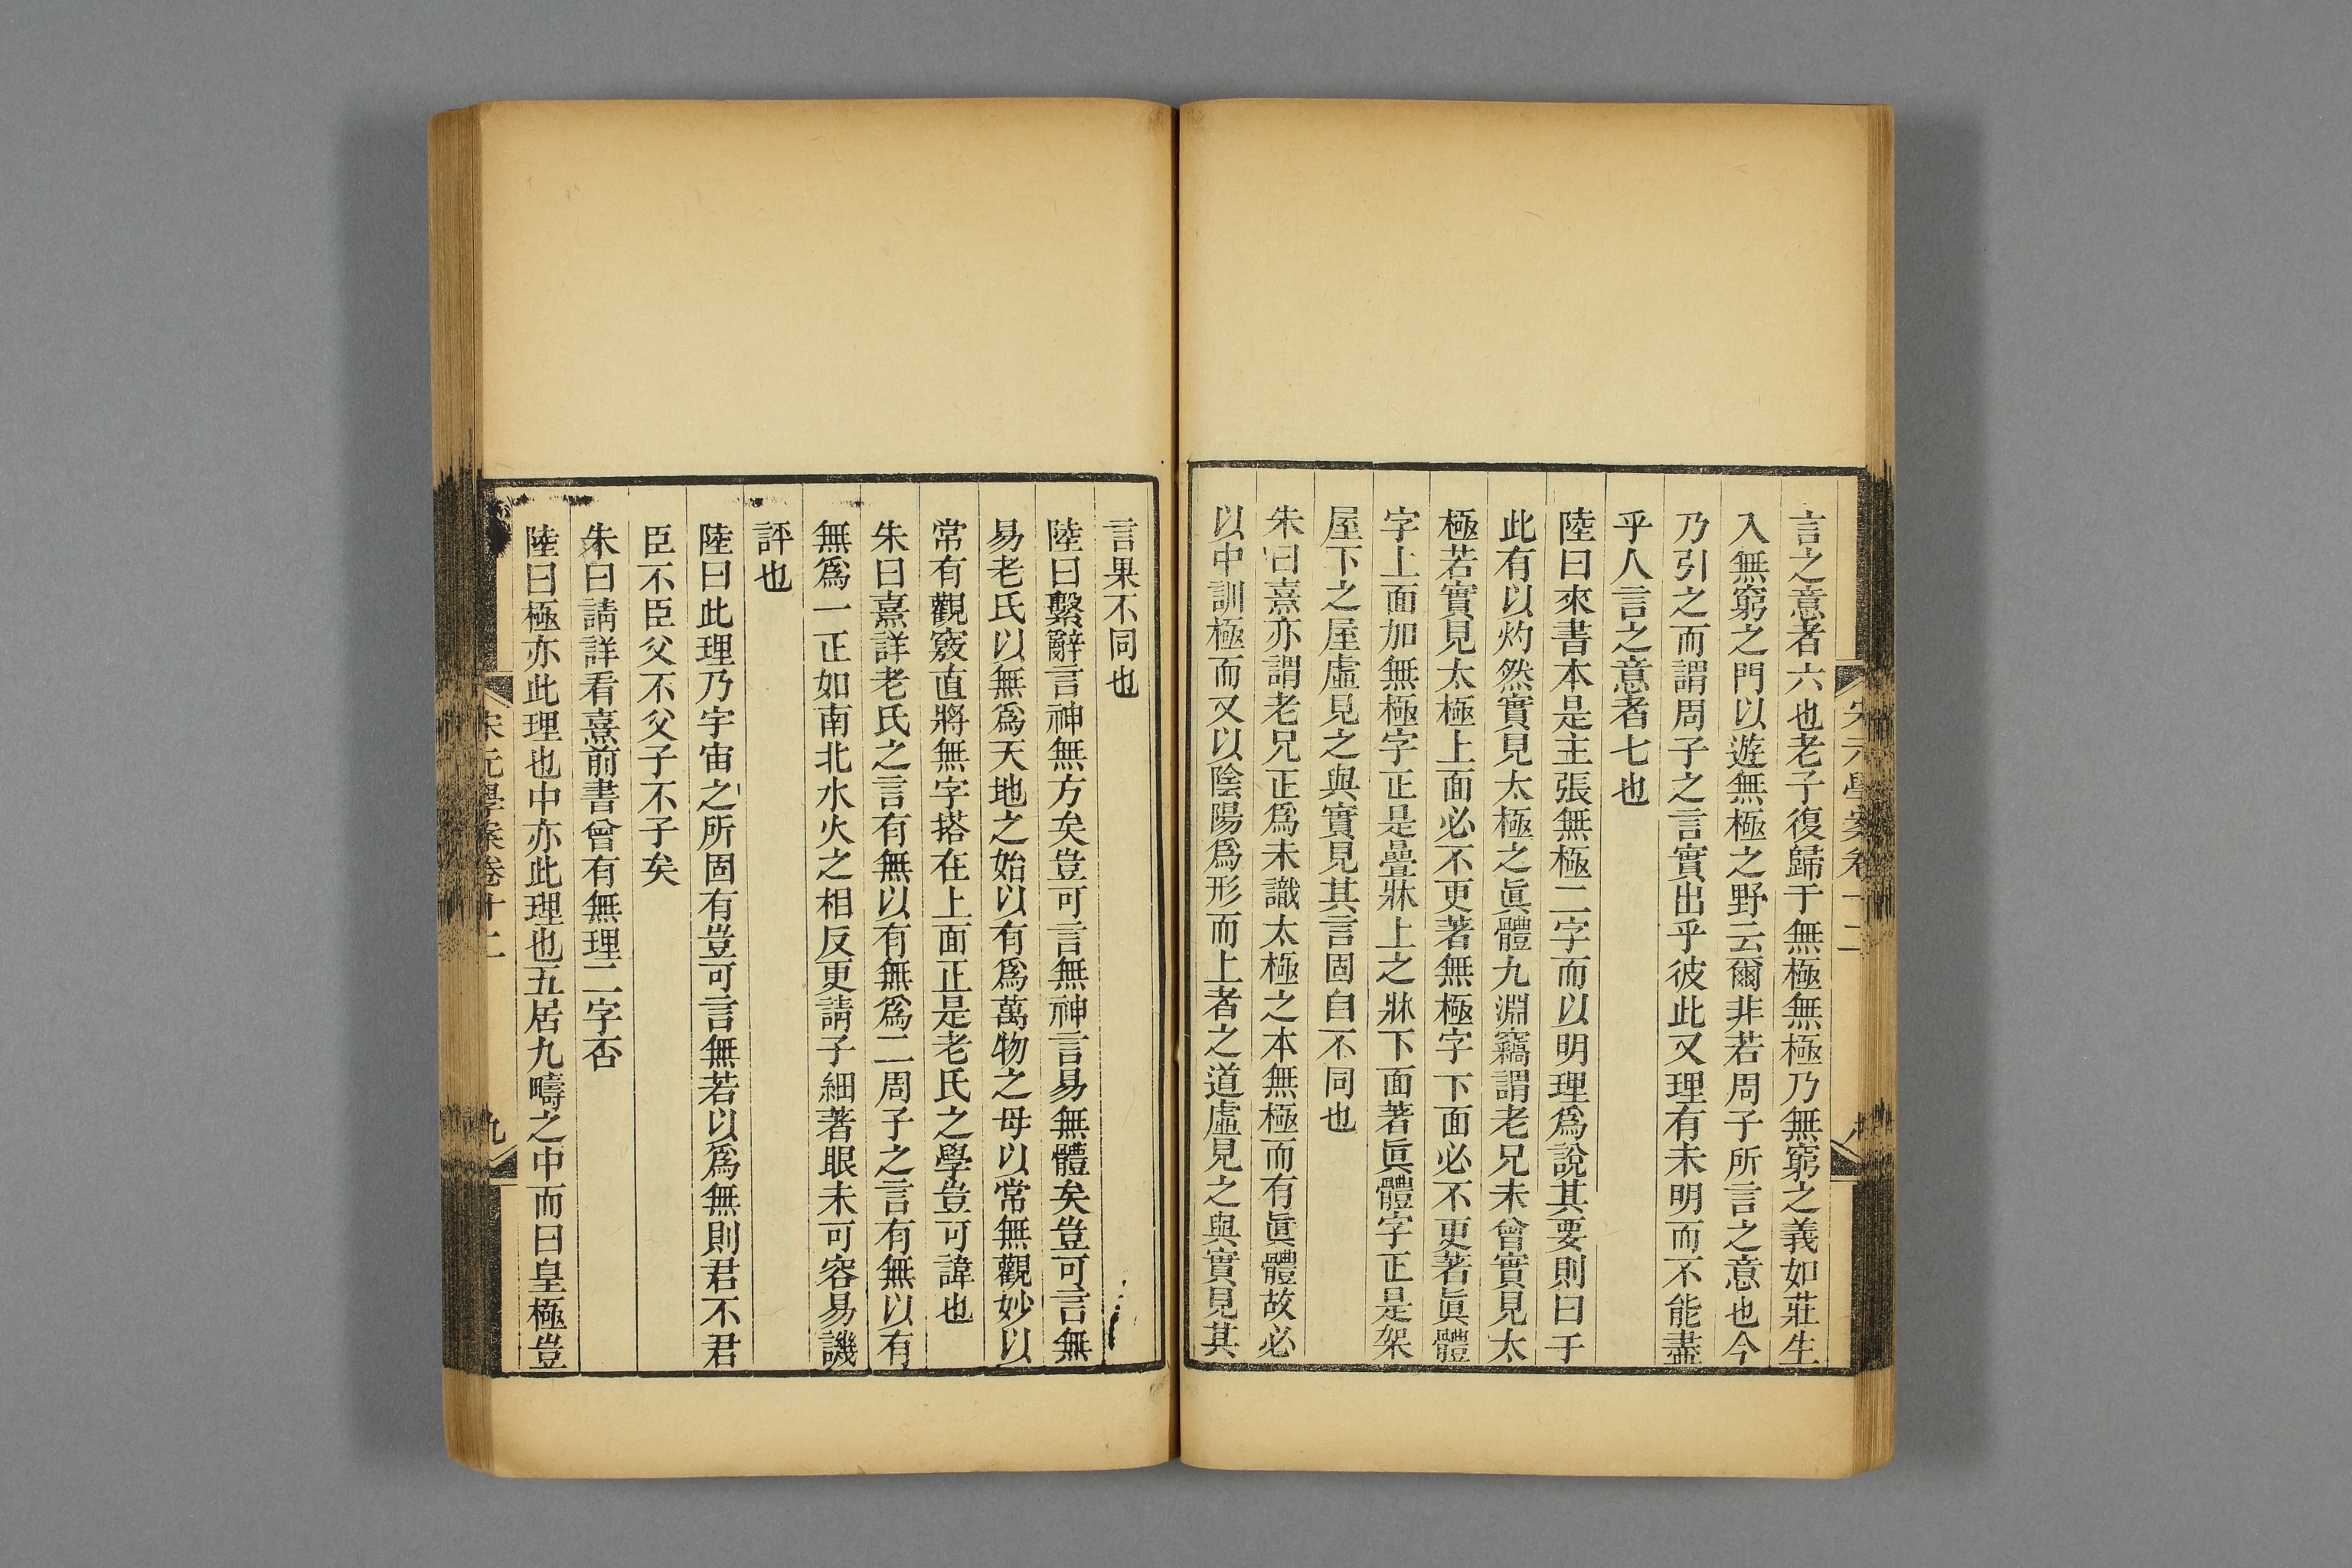 言之意者六也老子復歸于無極無極乃無窮之義如莊生
入無窮之門以遊無極之野云爾非若周子所言之意也今
乃引之而謂周子之言實出乎彼此又理有未明而不能盡
乎人言之意者七也
陸曰來書本是主張無極二字而以明理爲說其要則曰于
此有以灼然實見太極之眞體九淵竊謂老兄未曾實見太
極若實見太極上面必不更著無極字下面必不更著眞體
字上面加無極字正是疊牀上之牀下面著眞體字正是架
屋下之屋虛見之與實見其言固自不同也
朱曰熹亦謂老兄正爲未識太極之本無極而有眞體故必
以中訓極而又以陰陽爲形而上者之道虛見之與實見其
言果不同也
陸曰繫辭言神無方矣豈可言無神言易無體矣豈可言無
易老氏以無爲天地之始以有爲萬物之母以常無觀妙以
常有觀竅直將無字搭在上面正是老氏之學豈可諱也
朱曰熹詳老氏之言有無以有無爲二周子之言有無以有
無爲一正如南北水火之相反更請子細著眼未可容易譏
評也
陸曰此理乃宇宙之所固有豈可言無若以爲無則君不君
臣不臣父不父子不子矣
朱曰請詳看熹前書曾有無理二字否
陸曰極亦此理也中亦此理也五居九疇之中而曰皇極豈
宋元學案卷十二
九